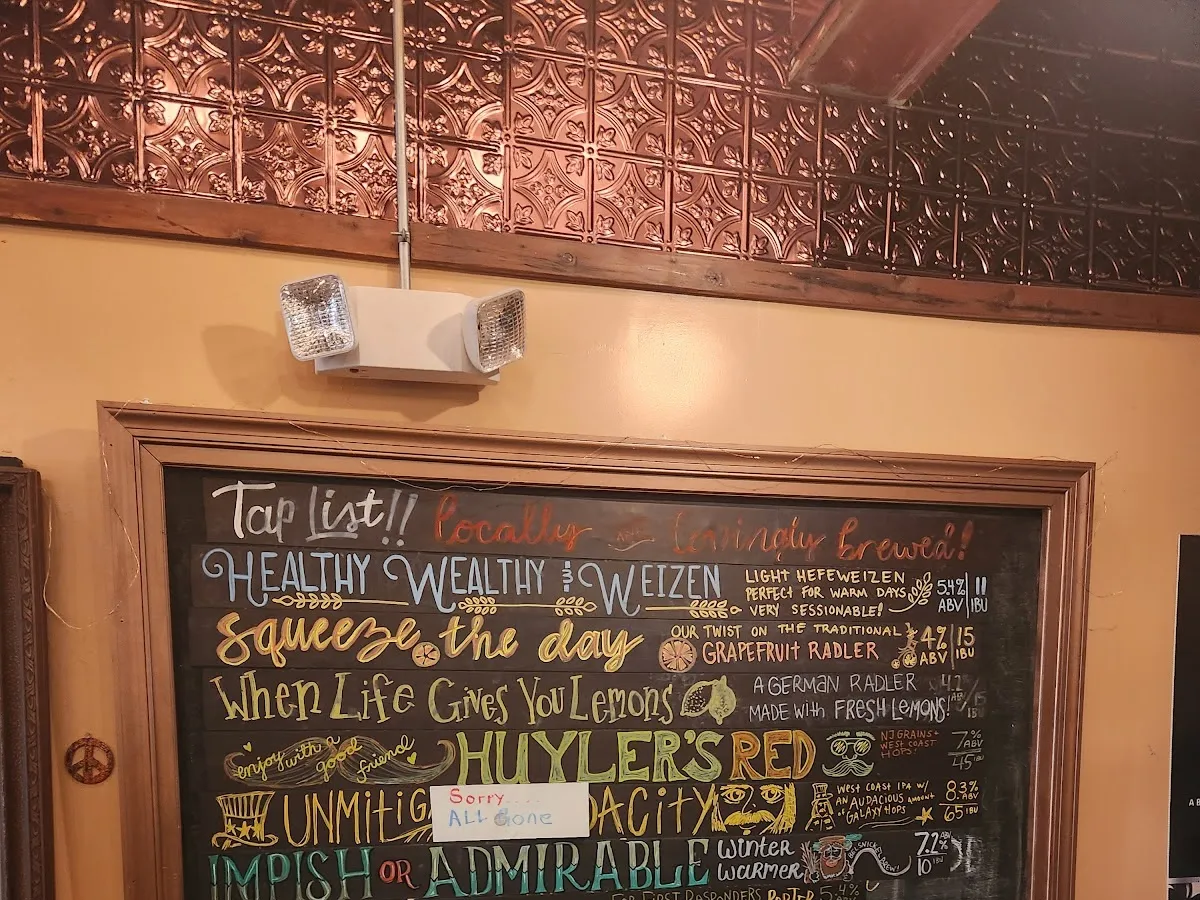 Tap List!! Locally AND Lovingly Brewed!
HEALTHY WEALTHY & WEIZEN
LIGHT HEFEWEIZEN
PERFECT FOR WARM DAYS
VERY SESSIONABLE!
5.4% ABV 11 IBU
Squeeze the day
OUR TWIST ON THE TRADITIONAL
GRAPEFRUIT RADLER
4% ABV 15 IBU
When Life Gives You Lemons
A GERMAN RADLER
MADE with FRESH LEMONS!
4.2 ABV 15 IBU
enjoy with a good friend
HUYLER'S RED
NJ GRAINS+
WEST COAST
HOPS
7% ABV
45 IBU
UNMITIG DACITY
Sorry....
ALL Gone
WEST COAST IPA W/
AN AUDACIOUS AMOUNT
"GALAXY HOPS
8.3% ABV
65 IBU
IMPISH OR ADMIRABLE
Winter
Warmer
7.2% ABV
10 IBU
FOR FIRST RESPONDERS PORTER 5.4%